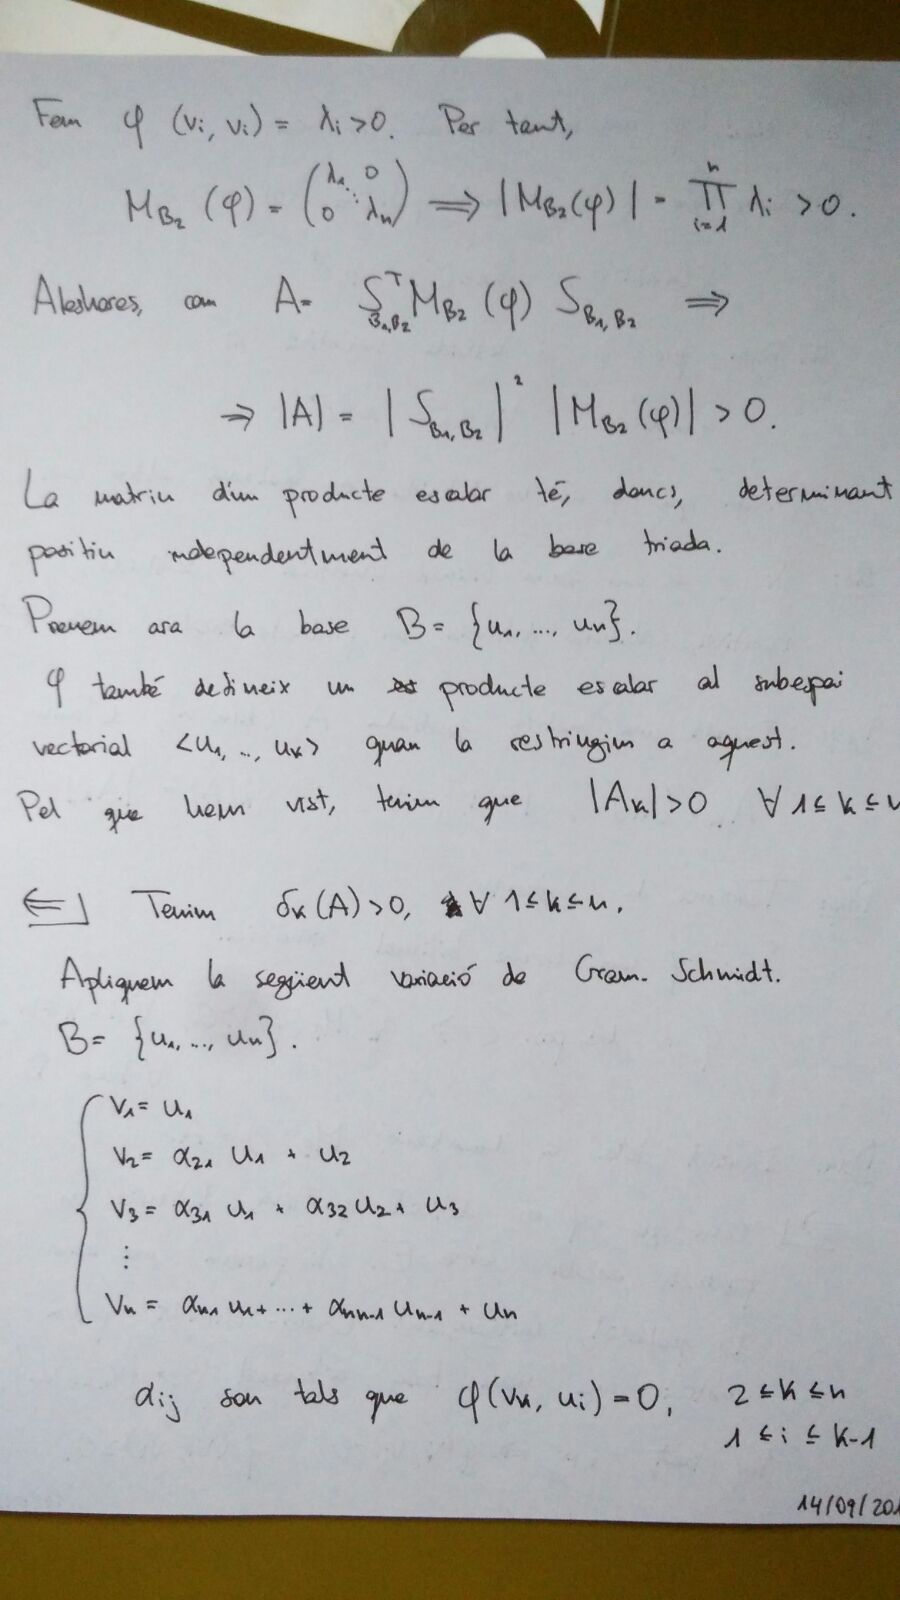 Fem φ (vi, vi) = λi > 0. Per tant,
M_B2 (φ) = (λ1 0 ⋱ 0 λn) ⟹ |M_B2(φ)| = ∏_{i=1}^{n} λi > 0.
Aleshores, com A = S^T_{B1,B2} M_B2 (φ) S_{B1,B2} ⟹
⟹ |A| = |S_{B1,B2}|² |M_B2(φ)| > 0.
La matriu d'un producte escalar té, doncs, determinant
positiu independentment de la base triada.
Prenem ara la base B = {u1, ..., un}.
φ també defineix un producte escalar al subespai
vectorial <u1, ..., uk> quan la restringim a aquest.
Pel que hem vist, tenim que |Ak| > 0 ∀ 1 ≤ k ≤ n
⟸] Tenim δk(A) > 0, ∀ 1 ≤ k ≤ n.
Apliquem la següent variació de Gram-Schmidt.
B = {u1, ..., un}.
v1 = u1
v2 = α21 u1 + u2
v3 = α31 u1 + α32 u2 + u3
⋮
vn = αn1 u1 + ... + αnn-1 un-1 + un
αij son tals que φ(vk, ui) = 0, 2 ≤ k ≤ n
1 ≤ i ≤ k-1
14/09/201